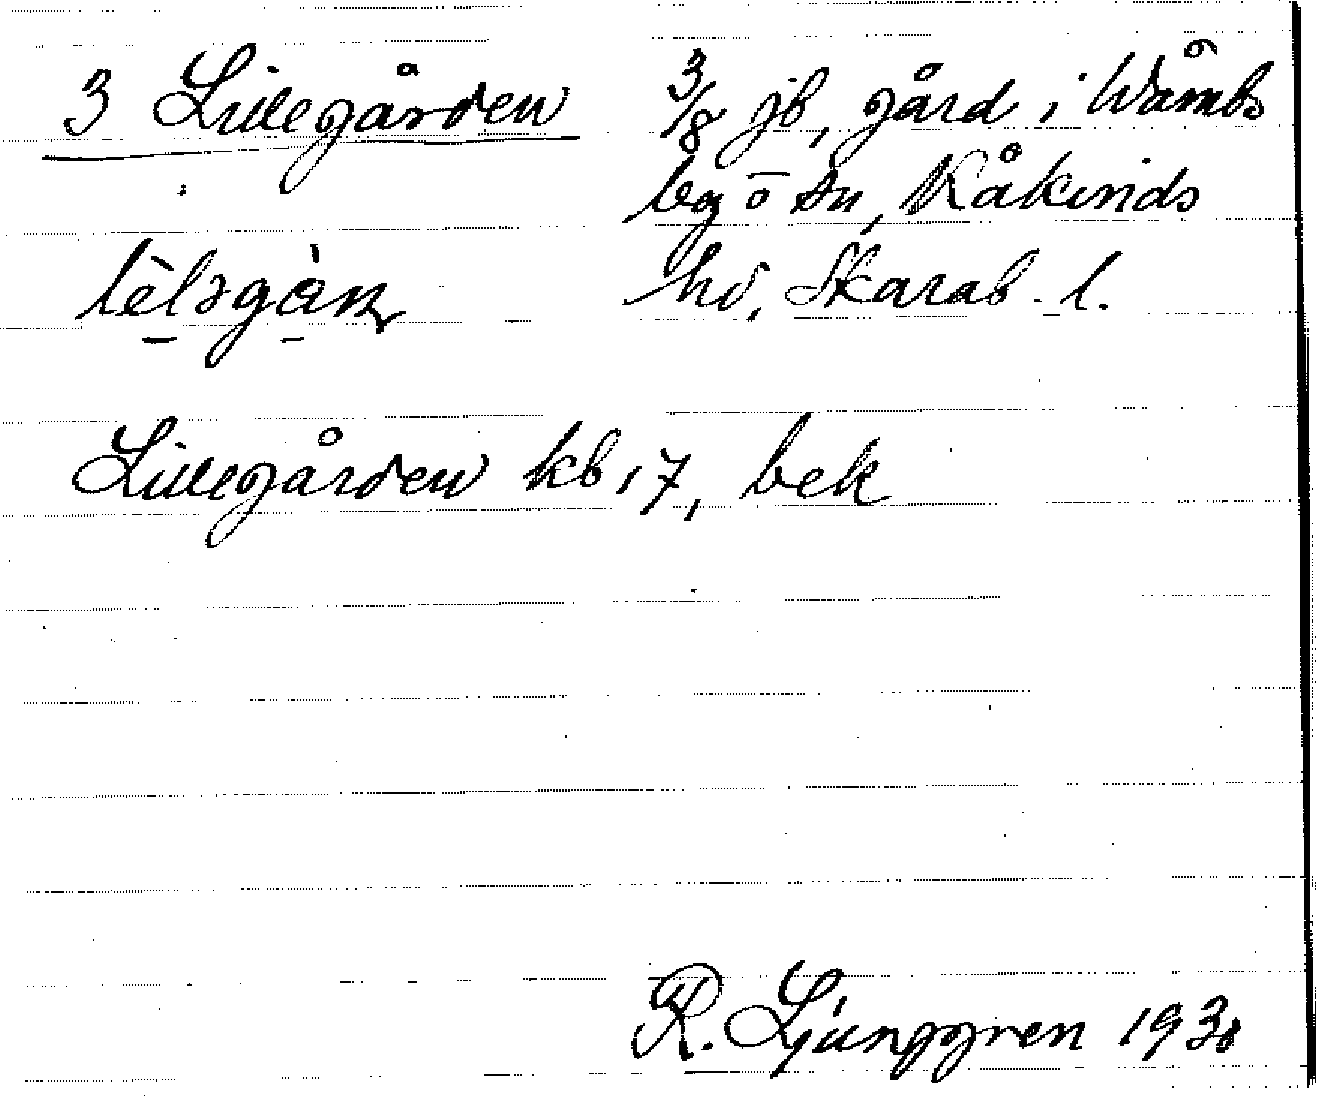 3 Lillegården 3/8 jb, gård i Wåmbs
by o sn, Kåkinds
hd, Skarab. l.
Lillegården kb 17, bek
R. Ljunggren 1930